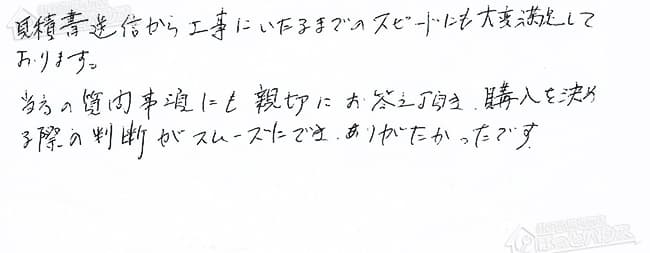 見積書送信から工事にいたるまでのスピードにも大変満足して
おります。
当方の質問事項にも親切にお答え頂き、購入を決め
る際の判断がスムーズにでき、ありがたかったです